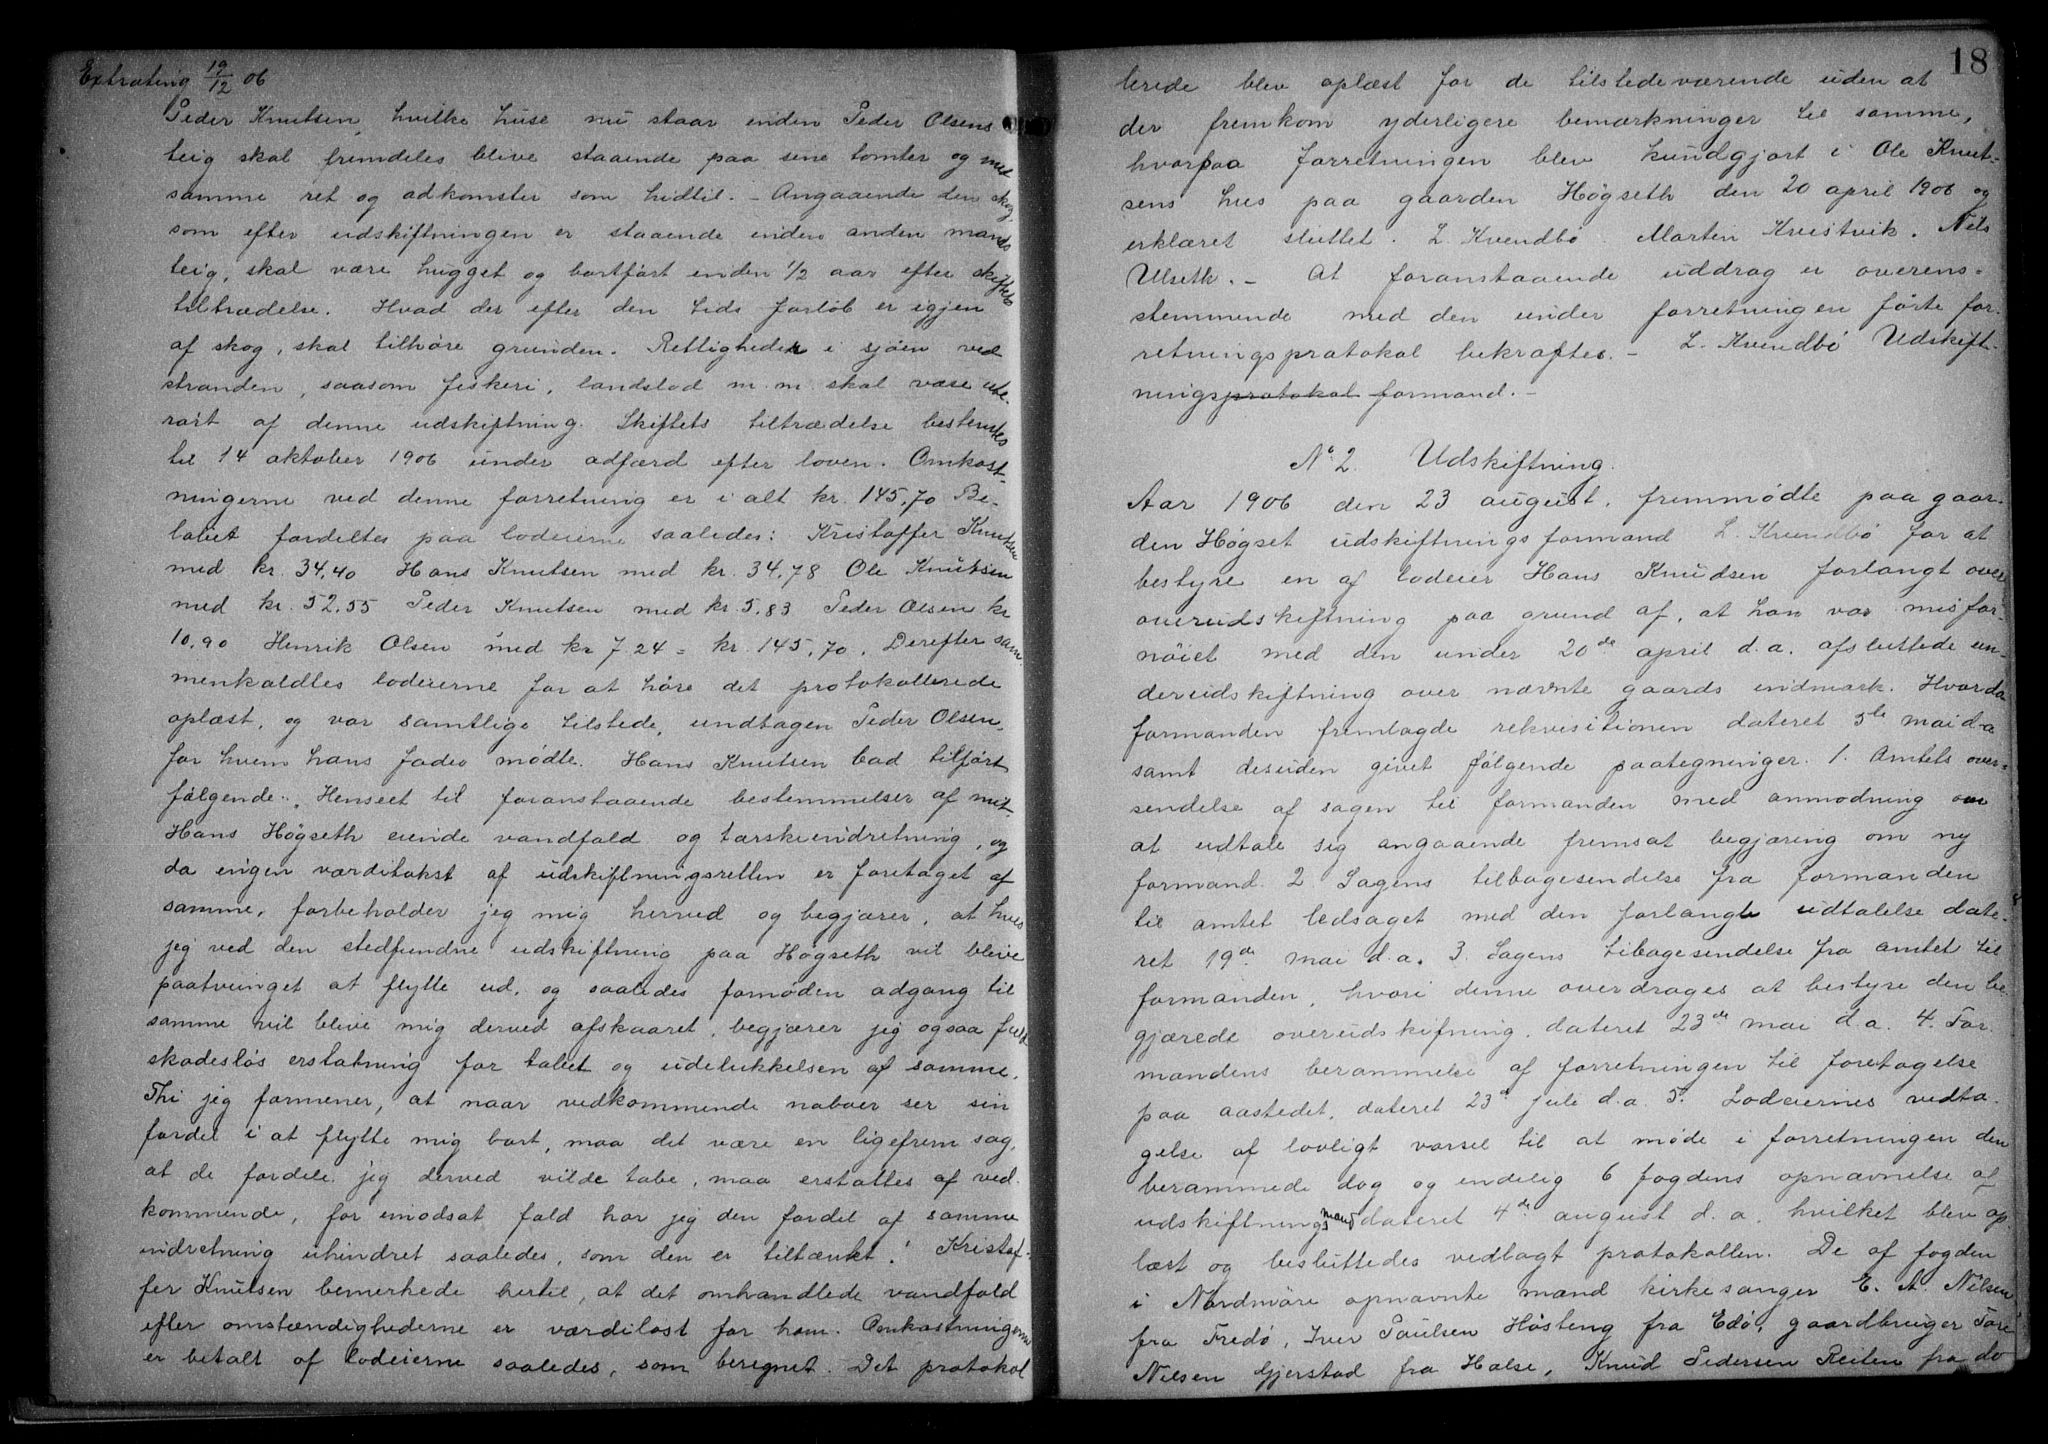 Extrating 19/12 06
Peder Knutsen, hvilke huse nu staar inden Peder Olsens
teig skal fremdeles blive staaende paa sine tomter og med
samme ret og adkomster som hidtil. - Angaaende den skog
som efter udskiftningen er staaende inden anden mands
teig, skal være hugget og bortført inden 1/2 aar efter skiftets
tiltrædelse. Hvad der efter den tids forløb er igjen
af skog, skal tilhøre grunden. Rettigheder i sjøen ved
stranden, saasom fiskeri, landslod m. m. skal være ube-
rørt af denne udskiftning. Skiftets tiltrædelse bestemtes
til 14 oktober 1906 under adfærd efter loven. Omkost-
ningerne ved denne forretning er i alt kr. 145,70 Be-
løbet fordeltes paa lodeierne saaledes: Kristoffer Knutsen
med kr. 34,40 Hans Knutsen med kr. 34,78 Ole Knutsen
med kr. 52.55 Peder Knutsen med kr. 5,83 Peder Olsen kr
10,90 Henrik Olsen med kr 7.24 = kr. 145,70. Derefter sam
menkaldtes lodeierne for at høre det protokollerede
oplæst, og var samtlige tilstede, undtagen Peder Olsen,
for hvem hans fader mødte. Hans Knutsen bad tilført
følgende: "Henseet til foranstaaende bestemmelser af mit
Hans Høgseth eiende vandfald og tærskeindretning, og
da ingen værditakst af udskiftningsretten er foretaget af
samme, forbeholder jeg mig herved og begjærer, at hvis
jeg ved den stedfundne udskiftning paa Høgseth vil blive
paatvunget at flytte ud, og saaledes fornøden adgang til
samme vil blive mig derved afskaaret, begjærer jeg ogsaa fuld
skadesløs erstatning for tabet og udelukkelsen af samme.
Thi jeg formener, at naar vedkommende naboer ser sin
fordel i at flytte mig bort, maa det være en ligefrem sag,
at de fordele jeg derved vilde tabe, maa erstattes af ved-
kommende, for imodsat fald har jeg den fordel af samme
indretning uhindret saaledes, som den er tiltænkt." Kristof-
fer Knutsen bemerkede hertil, at det omhandlede vandfald
efter omstændighederne er værdiløst for ham. Omkostningerne
er betalt af lodeierne saaledes, som beregnet. Det protokol
18
lerede blev oplæst for de tilstedeværende uden at
der fremkom yderligere bemærkninger til samme,
hvorpaa forretningen blev kundgjort i Ole Knut-
sens hus paa gaarden Høgseth den 20 april 1906 og
erklæret sluttet. L Kvendbø Marten Kvistvik. Nils
Ulseth. - At foranstaaende uddrag er overens-
stemmende med den under forretningen førte for-
retningsprotokol bekræftes. - L. Kvendbø Udskift-
ningsprotokol formand. -
No 2. Udskiftning.
Aar 1906 den 23 august, fremmødte paa gaar-
den Høgset udskiftningsformand L. Kvendbø for at
bestyre en af lodeier Hans Knudsen forlangt over
overudskiftning paa grund af, at han var misfor-
nøiet med den under 20de april d.a. afsluttede un-
derudskiftning over nævnte gaards indmark. Hvorda
formanden fremlagde rekvisitionen dateret 5te mai d.a
samt desuden givet følgende paategninger. 1. Amtets over-
sendelse af sagen til formanden med anmodning om
at udtale sig angaaende fremsat begjæring om ny
formand. 2 Sagens tilbagesendelse fra formanden
til amtet ledsaget med den forlangte udtalelse date-
ret 19de mai d.a. 3. Sagens tibagesendelse fra amtet til
formanden, hvori denne overdrages at bestyre den be
gjærede overudskifning, dateret 23de mai d.a. 4. For-
mandens berammelse af forretningen til foretagelse
paa aastedet, dateret 23d juli d.a 5. Lodeiernes vedta-
gelse af lovligt varsel til at møde i forretningen den
berammede dag og endelig 6 fogdens opnævnelse af
udskiftningsmænd dateret 4de august d.a. hvilket blev op
læst og besluttedes vedlagt protokollen. De af fogden
i Nordmøre opnævnte mænd kirkesanger E. A. Nilsen
fra Fredø, Iver Paulsen Høsteng fra Edø, gaardbruger Tore
Nilsen Gjerstad fra Halse, Knud Pedersen Reiten fra do